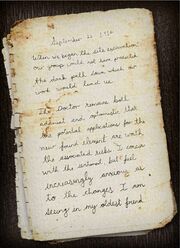 September 23, 1936
When we began the site excavation
our group could not have predicted
the dark path down which our
work would lead us.
The Doctor remains both
adamant and optimistic that
the potential applications for the
new found element are worth
the associated risks. I concur
with the rational but feel
increasingly anxious as
to the changes I am
seeing in my oldest friend